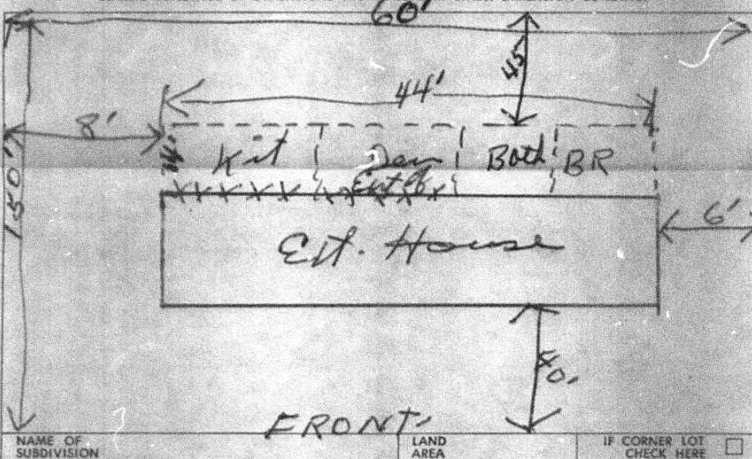 60'
45'
44'
8'
150'
14'
Kit
Den
Bath
BR
XXXXXX
Ext. House
6'
40'
FRONT
NAME OF SUBDIVISION
LAND AREA
IF CORNER LOT CHECK HERE